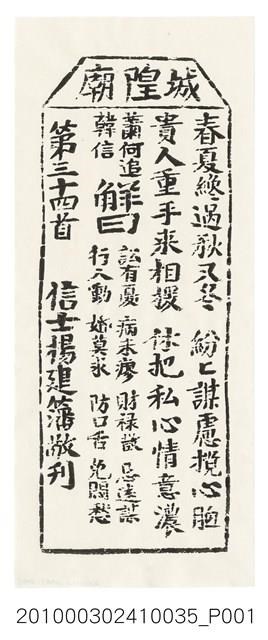 城隍廟
春夏纔過秋又冬 紛匕謀慮攪心胸
貴人垂手來相援 休把私心情意濃
蕭何追韓信
解曰
訟有憂 病未瘳 財祿散 忌遠謀
行人動 婚莫求 防口舌 免悶愁
第三十四首 信士楊建籓敬刊
201000302410035_P001